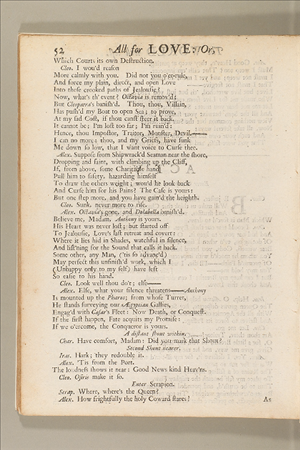 52 All for LOVE: Or,
Which Courts its own Destruction.
Cleo. I wou'd reason
More calmly with you. Did not you o'er-rule,
And force my plain, direct, and open Love
Into these crooked paths of Jealousie?
Now, what's th' event? Octavia is remov'd;
But Cleopatra's banish'd. Thou, thou, Villain,
Has push'd my Boat to open Sea; to prove,
At my sad Cost, if thou canst steer it back.
It cannot be; I'm lost too far; I'm ruin'd:
Hence, thou Impostor, Traitor, Monster, Devil.—
I can no more: thou, and my Griefs, have sunk
Me down so low, that I want voice to Curse thee.
Alex. Suppose some Shipwrack'd Seaman near the shore,
Dropping and faint, with climbing up the Cliff,
If, from above, some Charitable hand
Pull him to safety, hazarding himself
To draw the others weight; wou'd he look back
And Curse him for his Pains? The Case is yours;
But one step more, and you have gain'd the heighth.
Cleo. Sunk, never more to rise.
Alex. Octavia's gone, and Dolabella banish'd.
Believe me, Madam, Anthony is yours.
His Heart was never lost; but started off
To Jealousie, Love's last retreat and covert:
Where it lies hid in Shades, watchful in silence,
And list'ning for the Sound that calls it back.
Some other, any Man, ('tis so advanc'd)
May perfect this unfinish'd work, which I
(Unhappy only to my self) have left
So easie to his hand.
Cleo. Look well thou do't; else—
Alex. Else, what your silence threatens—Anthony
Is mounted up the Pharos; from whose Turret,
He stands surveying our Ægyptian Gallies,
Engag'd with Cæsar's Fleet: Now Death, or Conquest.
If the first happen, Fate acquits my Promise:
If we o'ercome, the Conqueror is yours.
A distant Shout within.
Char. Have comfort, Madam: Did you mark that Shout?
Second Shout nearer.
Iras. Hark; they redouble it.
Alex. 'Tis from the Port.
The loudness shows it near: Good News kind Heav'ns.
Cleo. Osiris make it so.
Enter Serapion.
Serap. Where, where's the Queen?
Alex. How frightfully the holy Coward stares!
As